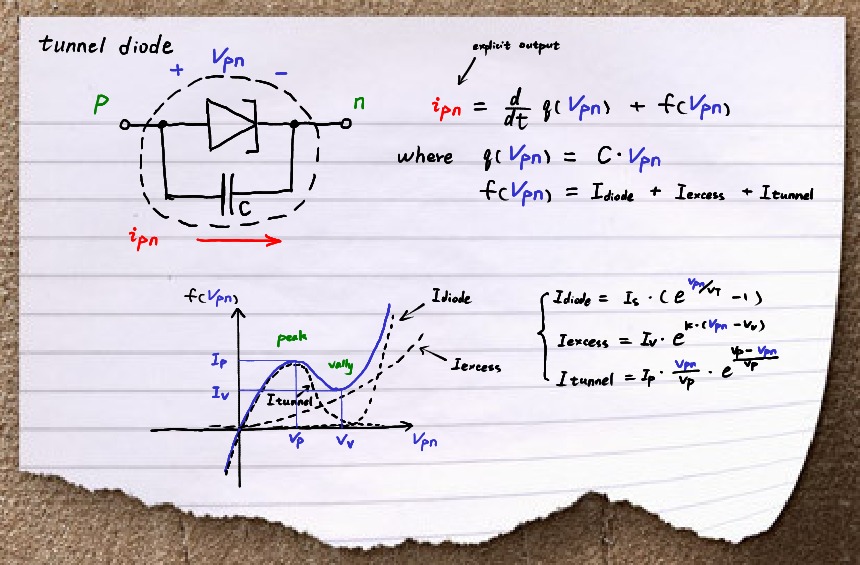 tunnel diode
+ Vpn −
p n
C
ipn
explicit output
ipn = d/dt q(Vpn) + f(Vpn)
where q(Vpn) = C·Vpn
f(Vpn) = Idiode + Iexcess + Itunnel
f(Vpn)
Idiode
peak
Ip
vally
Iexcess
Iv
Itunnel
Vp Vv Vpn
Idiode = Is · (e^Vpn/VT − 1)
Iexcess = Iv · e^k·(Vpn − Vv)
Itunnel = Ip · Vpn/Vp · e^(Vp − Vpn)/Vp